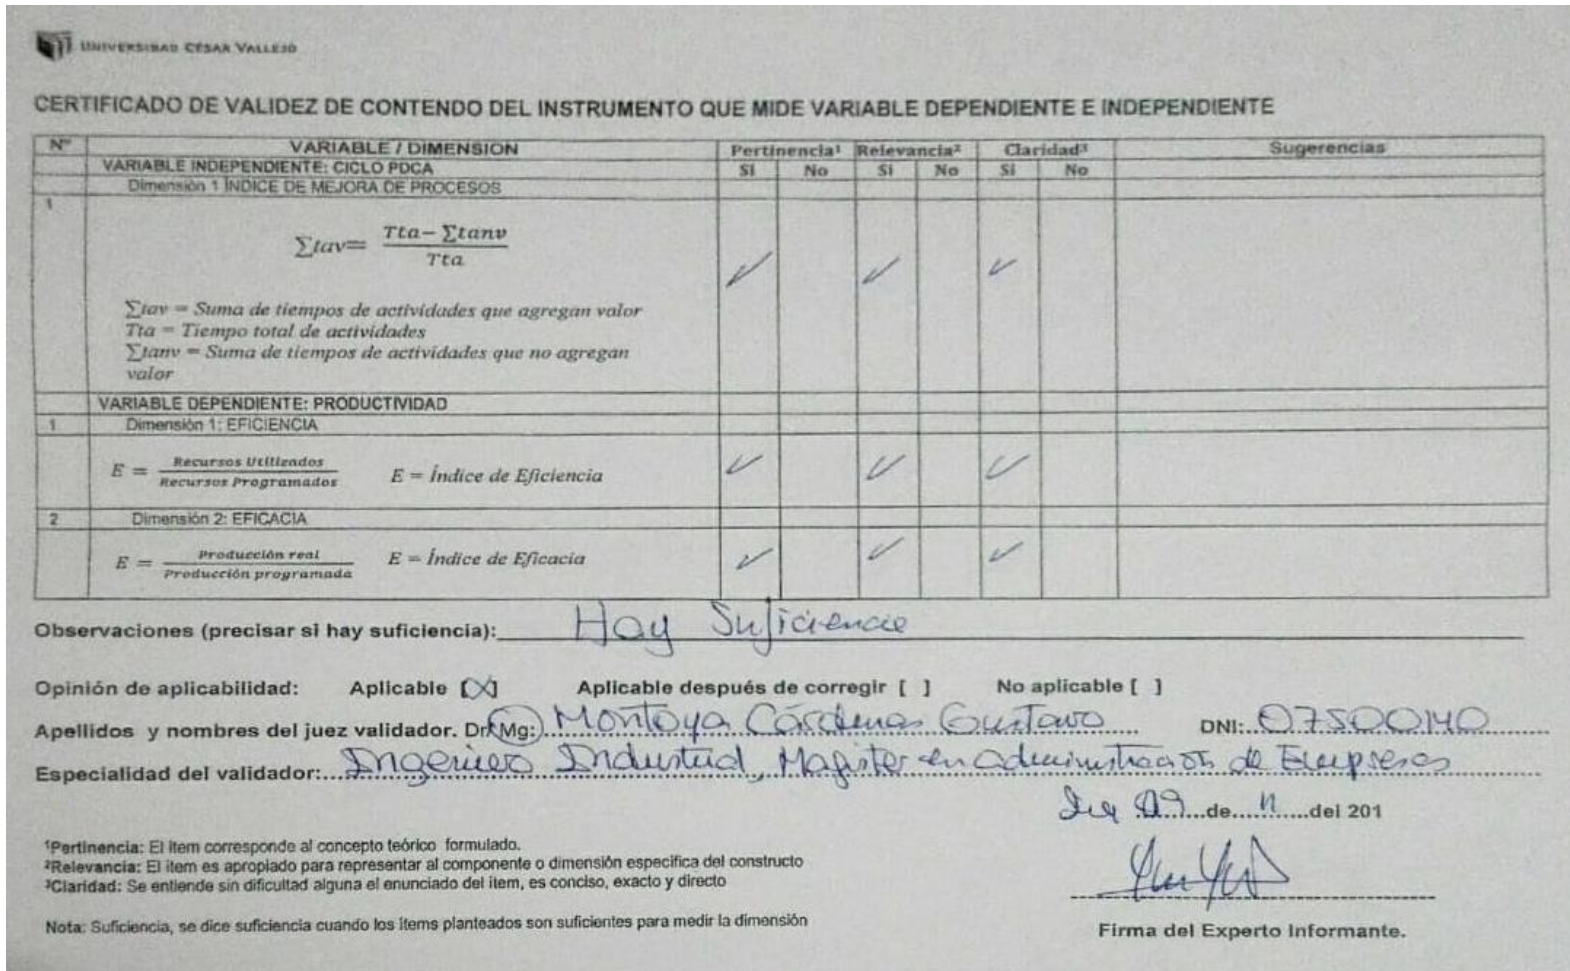 UNIVERSIDAD CÉSAR VALLEJO
CERTIFICADO DE VALIDEZ DE CONTENDO DEL INSTRUMENTO QUE MIDE VARIABLE DEPENDIENTE E INDEPENDIENTE
Nº VARIABLE / DIMENSION Pertinencia¹ Relevancia² Claridad³ Sugerencias
VARIABLE INDEPENDIENTE: CICLO PDCA Si No Si No Si No
Dimensión 1 ÍNDICE DE MEJORA DE PROCESOS
1
∑tav= (Tta− ∑tanv) / Tta
∑tav = Suma de tiempos de actividades que agregan valor
Tta = Tiempo total de actividades
∑tanv = Suma de tiempos de actividades que no agregan
valor
VARIABLE DEPENDIENTE: PRODUCTIVIDAD
1 Dimensión 1: EFICIENCIA
E = Recursos Utilizados / Recursos Programados E = Índice de Eficiencia
2 Dimensión 2: EFICACIA
E = Producción real / Producción programada E = Índice de Eficacia
Observaciones (precisar si hay suficiencia): Hay Suficiencia
Opinión de aplicabilidad: Aplicable [X] Aplicable después de corregir [ ] No aplicable [ ]
Apellidos y nombres del juez validador. Dr/ Mg: Montoya Cárdenas Gustavo DNI: 07500140
Especialidad del validador: Ingeniero Industrial, Magister en Administración de Empresas
09 de 11 del 201
¹Pertinencia: El item corresponde al concepto teórico formulado.
²Relevancia: El item es apropiado para representar al componente o dimensión especifica del constructo
³Claridad: Se entiende sin dificultad alguna el enunciado del item, es conciso, exacto y directo
Nota: Suficiencia, se dice suficiencia cuando los items planteados son suficientes para medir la dimensión
Firma del Experto Informante.